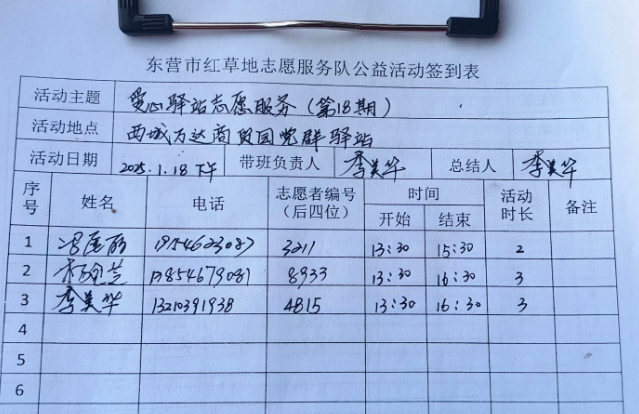 东营市红草地志愿服务队公益活动签到表
活动主题 爱心驿站志愿服务（第18期）
活动地点 西城万达商贸园党群驿站
活动日期 2025.1.18下午 带班负责人 李美华 总结人 李美华
序号 姓名 电话 志愿者编号（后四位） 时间 开始 结束 活动时长 备注
1 3211 13:30 15:30 2
2 8933 13:30 16:30 3
3 李美华 13210391938 4815 13:30 16:30 3
4
5
6